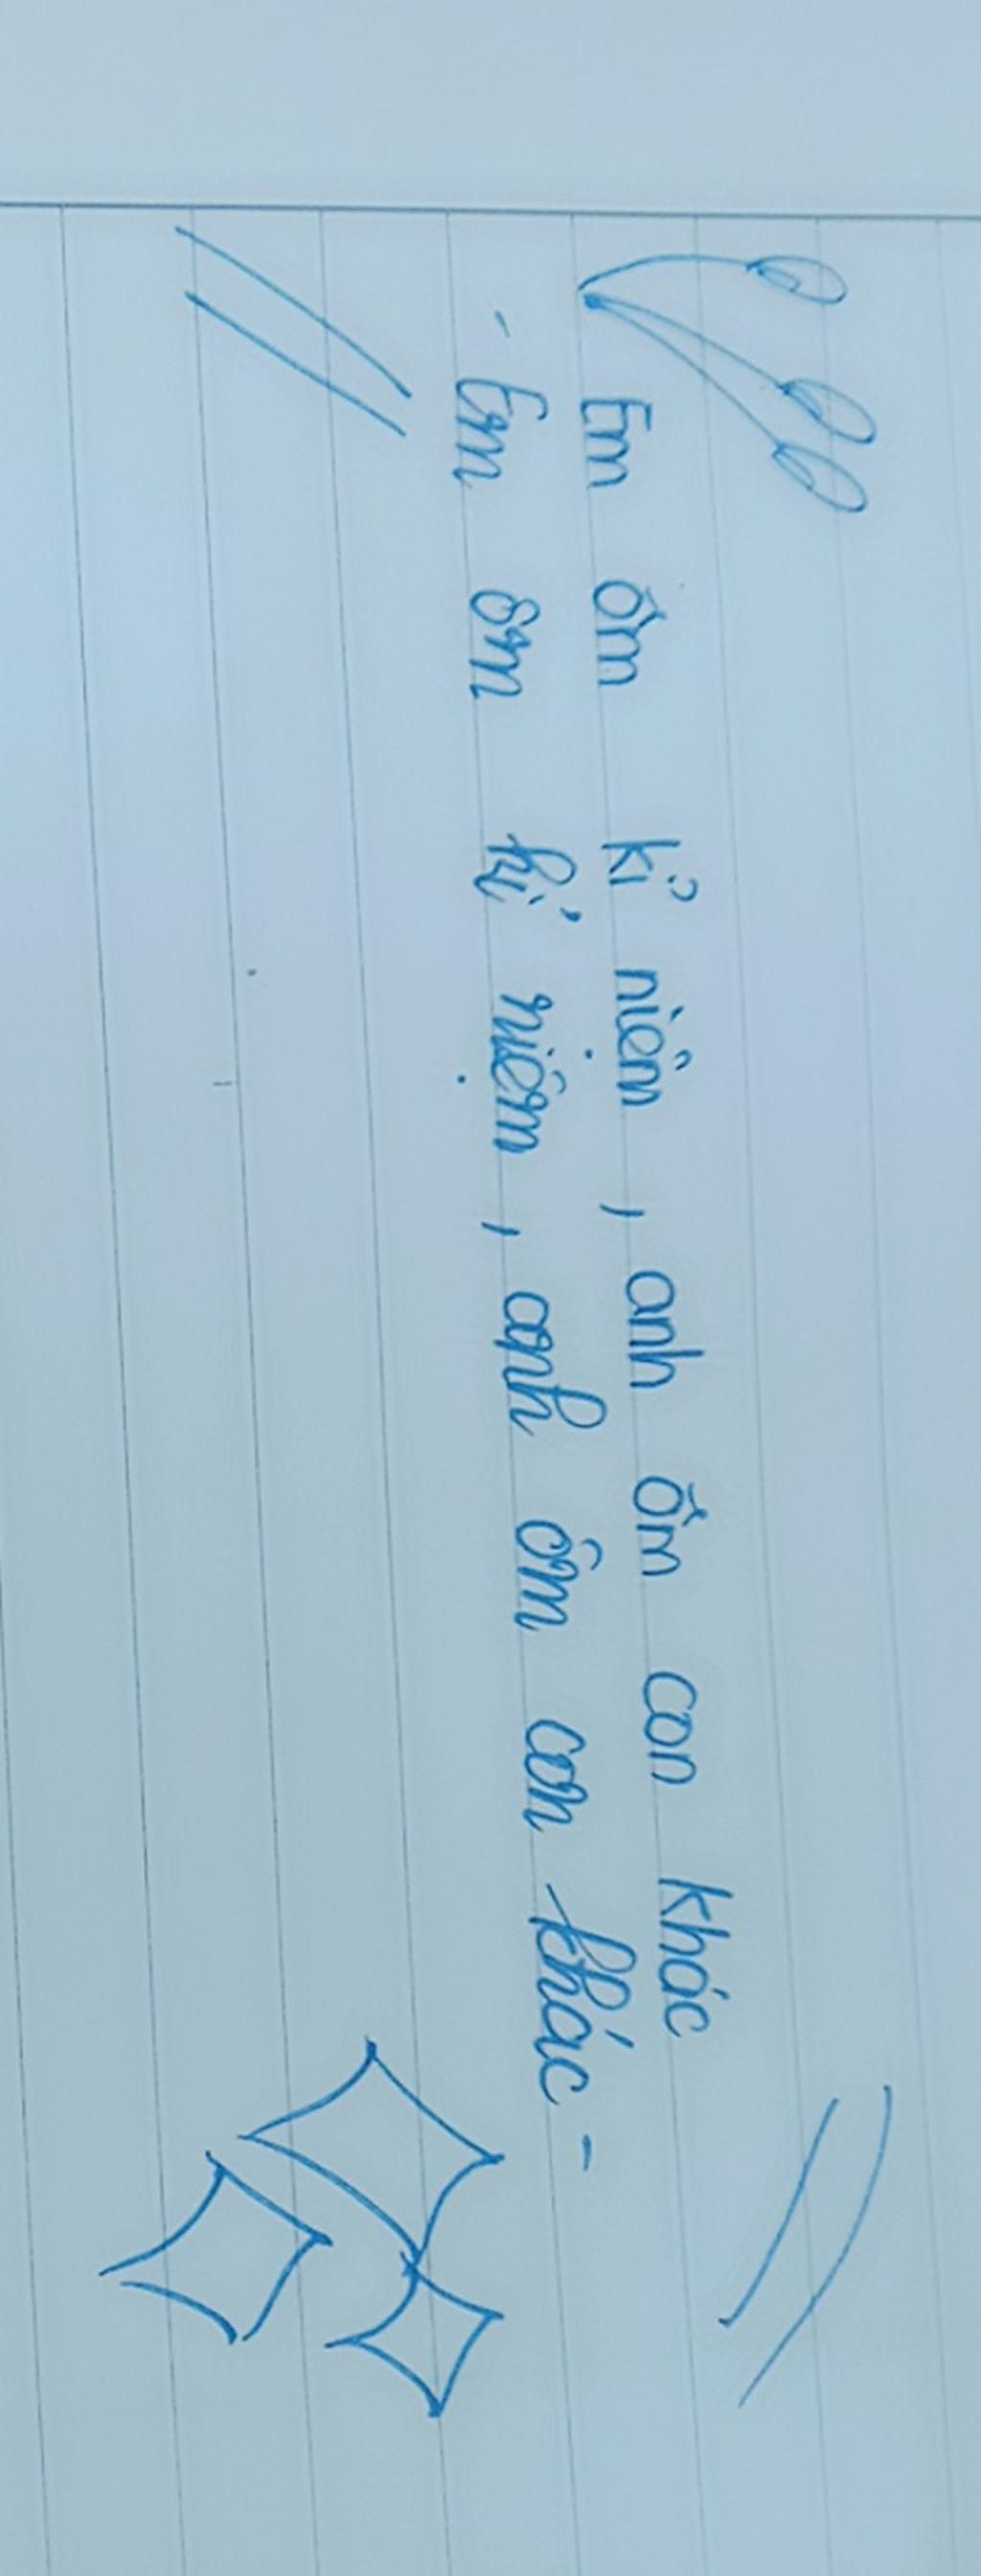 Em ôm kỉ niệm, anh ôm con khác
- Em ôm kỉ niệm, anh ôm con khác -